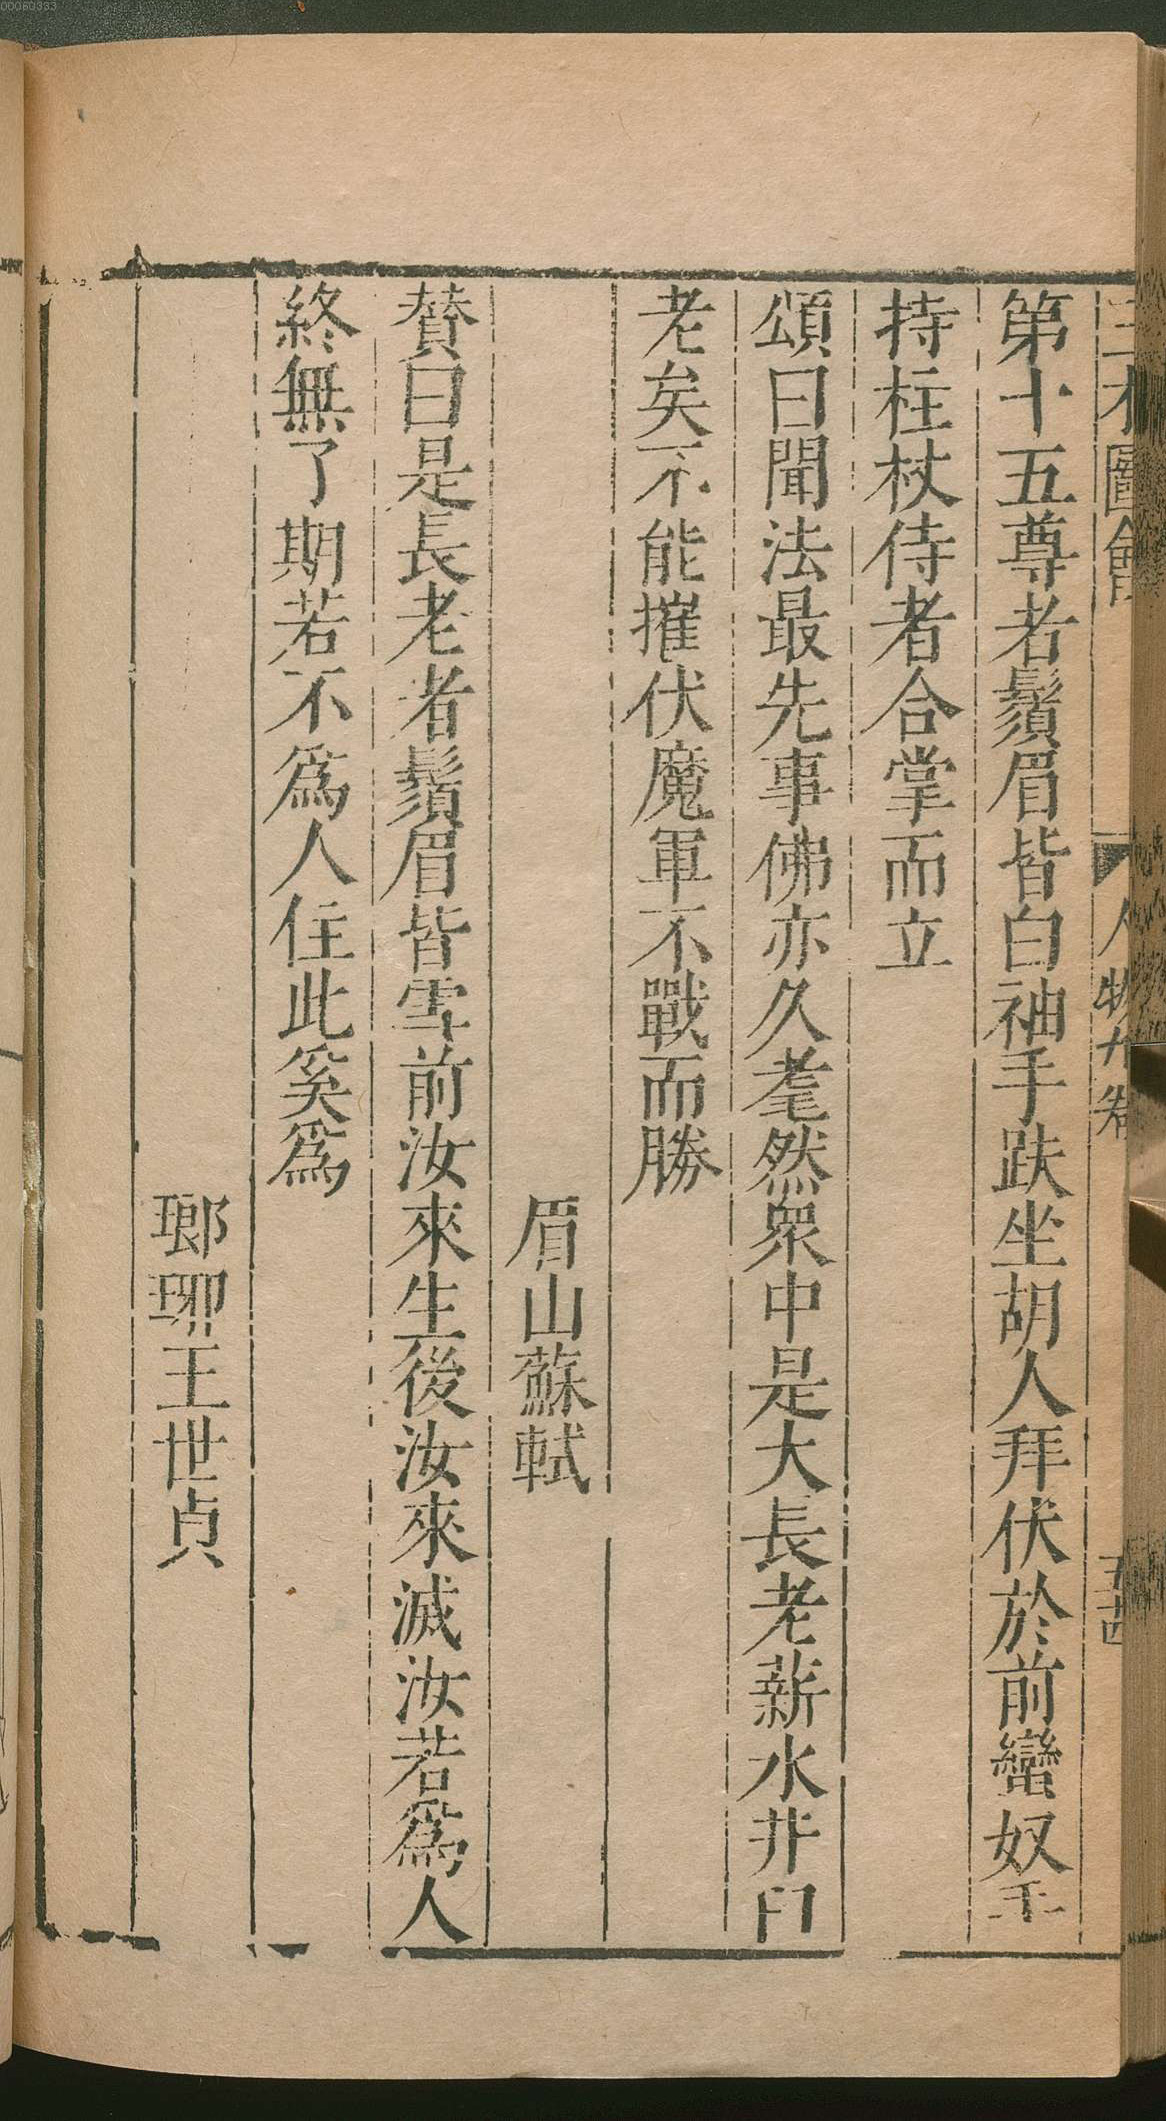 00060333
三才圖會 人物九卷 五十四
第十五尊者鬚眉皆白袖手趺坐胡人拜伏於前蠻奴手
持柱杖侍者合掌而立
頌曰聞法最先事佛亦久耄然衆中是大長老薪水井臼
老矣不能摧伏魔軍不戰而勝
眉山蘇軾
贊曰是長老者鬚眉皆雪前汝來生後汝來滅汝若爲人
終無了期若不爲人住此奚爲
瑯琊王世貞